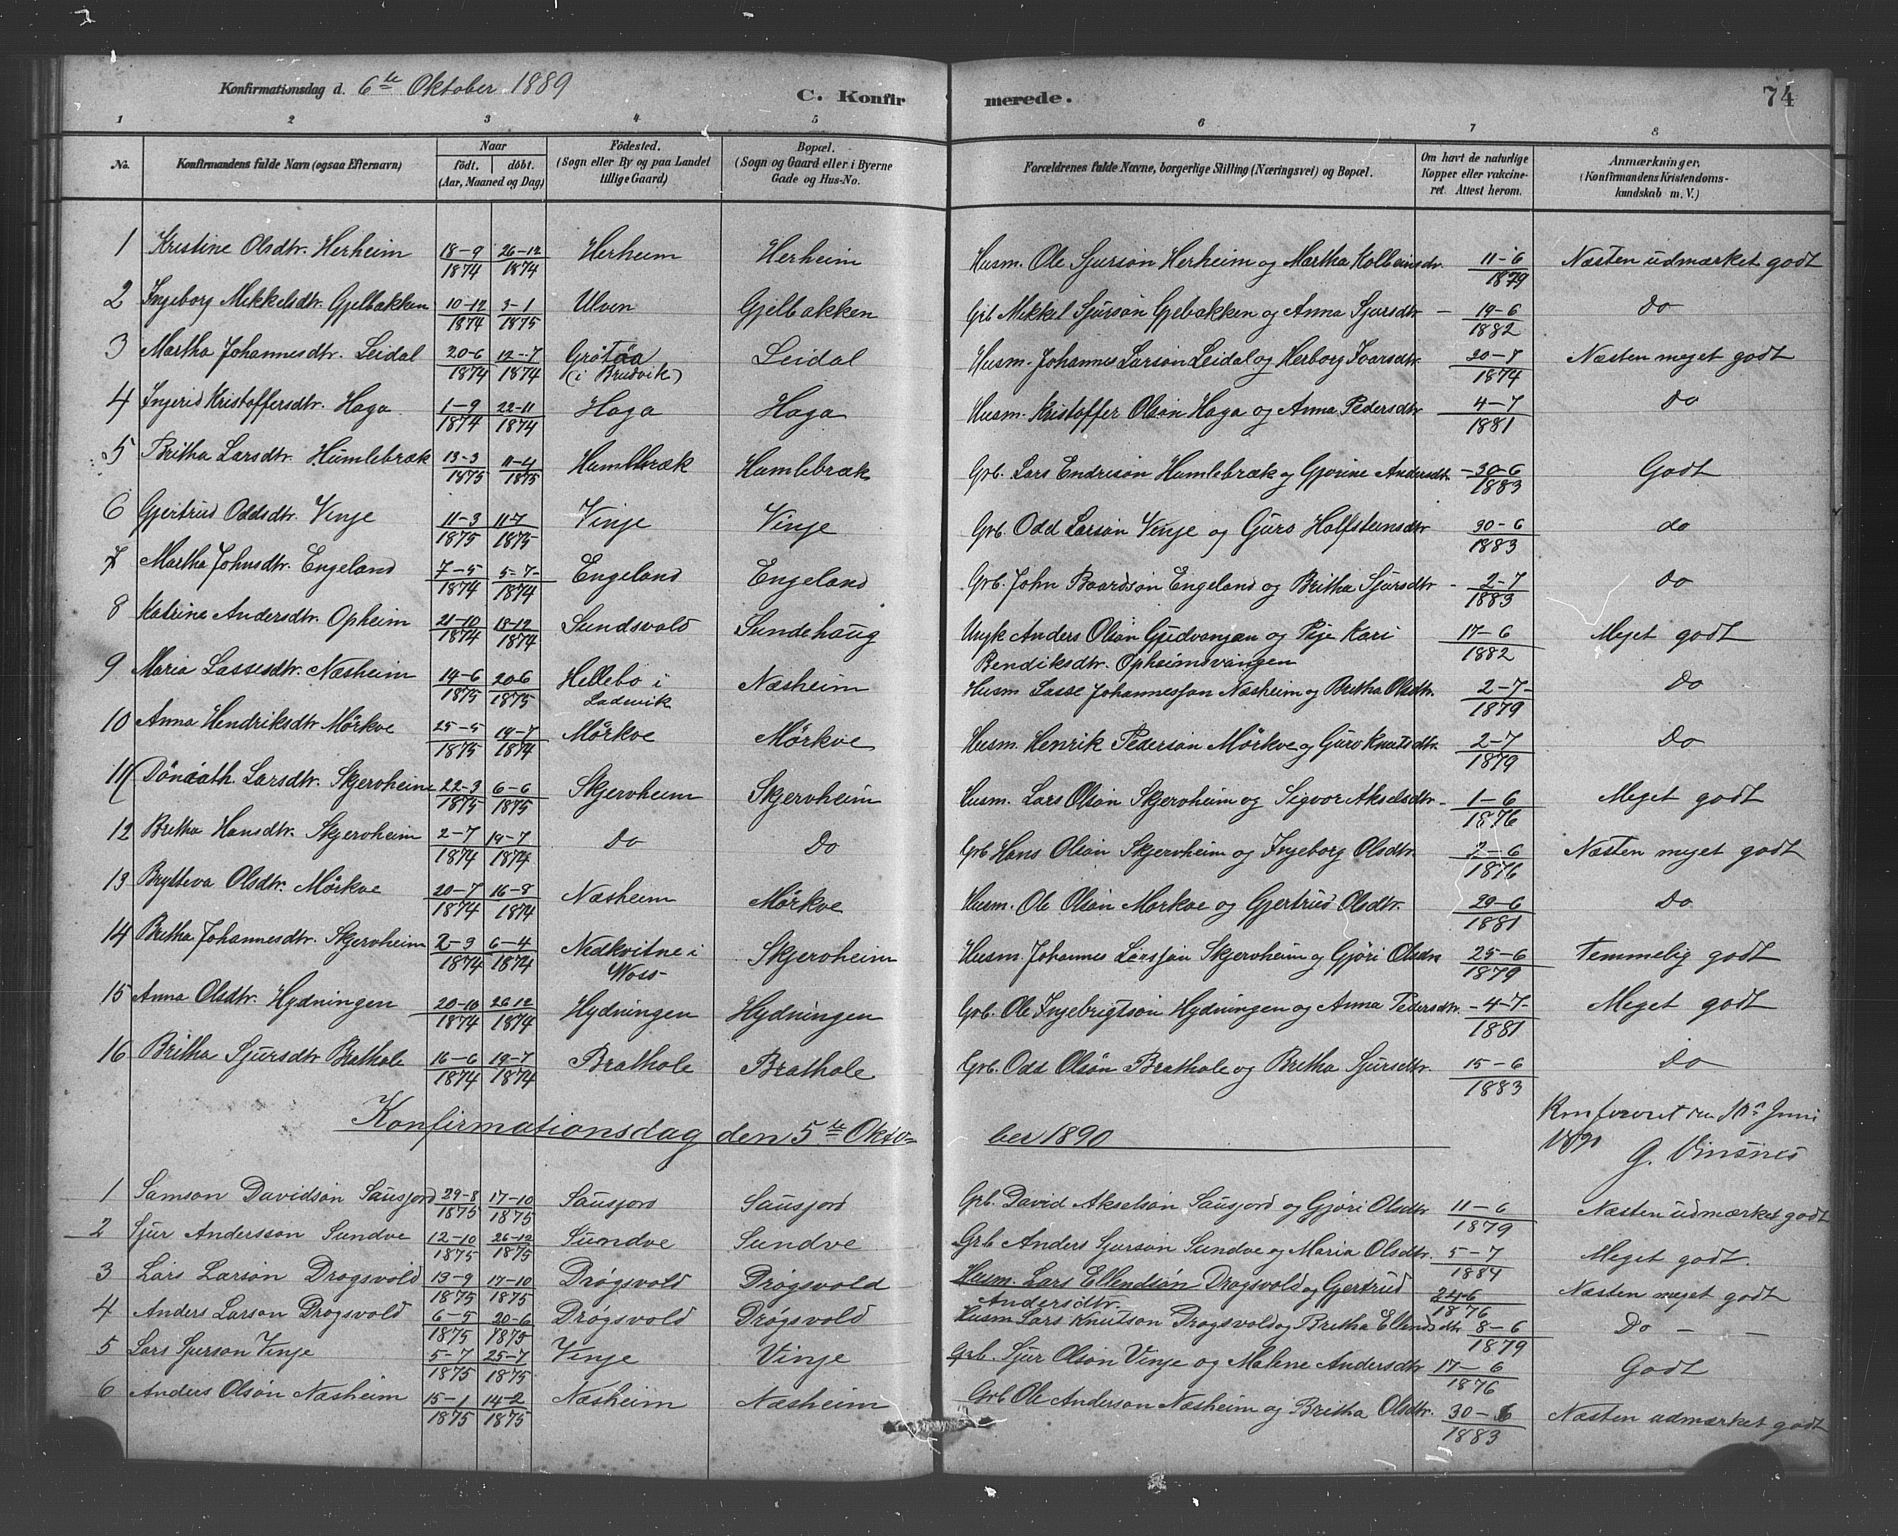 Konfirmationsdag d. 6te Oktober 1889 C. Konfirmerede. 74
1 2 3 4 5 6 7 8
No. Konfirmandens fulde Navn (ogsaa Efternavn) Naar født. døbt. (Aar, Maaned og Dag) Fødested. (Sogn eller By og paa Landet tillige Gaard) Bopæl. (Sogn og Gaard eller i Byerne Gade og Hus-No. Forældrenes fulde Navne, borgerlige Stilling (Næringsvei) og Bopæl. Om havt de naturlige Kopper eller vakcineret. Attest herom. Anmærkninger, (Konfirmandens Kristendomskundskab m. V.)
1 Kristine Olsdtr. Herheim 18-9 1874 26-12 1874 Herheim Herheim Husm. Ole Sjurson Herheim og Martha Kolbeinsdr. 11-6 1879 Næsten udmærket godt
2 Ingeborg Mikkelsdtr. Gjelbakken 10-12 1874 3-1 1875 Ulven Gjelbakken Grb Mikkel Sjurson Gjelbakken og Anna Sjursdtr - 19-6 1882 Do
3 Martha Johannesdtr. Leidal 20-6 1874 12-7 1874 Grøtøa (i Brudvik) Leidal Husm. Johannes Larson Leidal og Herborg Ivarsdtr. 20-7 1874 Næsten meget godt
4 Ingerid Kristoffersdtr. Haga 1-9 1874 22-11 1874 Haga Haga Husm. Kristoffer Olson Haga og Anna Pedersdtr 4-7 1881 Do
5 Britha Larsdtr. Humlebræk 13-3 1875 11-4 1875 Humlebræk Humlebræk Grb. Lars Endrison Humlebræk og Gjorine Andersdtr. 30-6 1883 Godt
6 Gjertrud Oddsdtr. Vinje 11-3 1875 11-7 1875 Vinje Vinje Grb. Odd Larson Vinje og Guro Holfsteinsdtr 30-6 1883 do
7 Martha Johnsdtr. Engeland 7-5 1874 5-7 1874 Engeland Engeland Grb. John Baardson Engeland og Britha Sjursdtr - 2-7 1883 Do
8 Katrina Andersdtr. Opheim 21-10 1874 18-12 1874 Sundsvold Sundehaug Ungk Anders Olson Gudvangen og Pige Kari Bendiksdtr. Opheimsvangen 17-6 1882 Meget godt
9 Maria Lassesdtr. Næsheim 14-6 1875 20-6 1875 Hellebø i Ladevik Næsheim Husm Lasse Johannesson Næsheim og Britha Olsdtr. 2-7 1879 Do
10 Anna Hendriksdtr Mørkve 25-5 1875 19-7 1874 Mørkve Mørkve Husm. Henrik Pederson Mørkve og Guro Knutsdtr. 2-7 1879 Do
11 Larsdtr. Skjervheim 22-3 1875 6-6 1875 Skjervheim Skjervheim Husm. Lars Olson Skjervheim og Sigvor Akselsdtr - 1-6 1876 Meget godt
12 Britha Hansdtr. Skjervheim 2-7 1874 19-7 1874 Do Do Grb Hans Olson Skjervheim og Ingeborg Olsdtr. 2-6 1876 Næsten meget godt
13 Brytteva Olsdtr. Mørkve 20-7 1874 16-8 1874 Næsheim Mørkve Husm. Ole Olson Mørkve og Gjertrud Olsdtr. 29-6 1881 Do
14 Britha Johannesdtr. Skjervheim 2-3 1874 6-4 1874 Nedkvitne i Woss Skjervheim Husm. Johannes Larsson Skjervheim og Gjøri Olsdn 25-6 1879 Temmelig godt
15 Anna Olsdtr. Hydningen 20-10 1874 26 12 1874 Hydningen Hydningen Grb. Ole Ingebrigtson Hydningen og Anna Pedersdtr. 4-7 1881 Meget godt
16 Britha Sjursdtr Brathole 16-6 1874 19-7 1874 Brathole Brathole Grb. Odd Olson Brathole og Britha Sjursdtr. 15-6 1883 Do
Konfereret den Juni
Konfirmationsdag den 5te Oktober 1890
G. Vinsnes
1 Samson Davidson Sausjord 29-8 1875 17-10 1875 Sausjord Sausjord Grb. David Akselson Sausjord og Gjøri Olsdtr 11-6 1879 Næsten udmærket godt
2 Sjur Andersson Sundve 12-10 1875 26-12 1875 Sundve Sundve Grb Anders Sjurson Sundve og Maria Olsdtr. 5-7 1884 Meget godt.
3 Lars Larson Drøgsvold 13-9 1875 17-10 1875 Drøgsvold Drøgsvold Husm. Lars Ellendson Drøgsvold og Gjertrud Andersdtr. 24-6 1876 Næsten meget godt
4 Anders Larson Drøgsvold 6-5 1875 20-6 1875 Drøgsvold Drøgsvold Husm Lars Knutson Drogsvold og Britha Ellendsdtr 8-6 1879 Do - -
5 Lars Sjurson Vinje 5-7 1875 25-7 1875 Vinje Vinje Grb. Sjur Olson Vinje og Malene Andersdtr 17-6 1876 Godt
6 Anders Olson Næsheim 15-1 1875 14-2 1875 Næsheim Næsheim Grb Ole Anderson Næsheim og Britha Olsdtr. 30-6 1883 Næsten udmærket godt